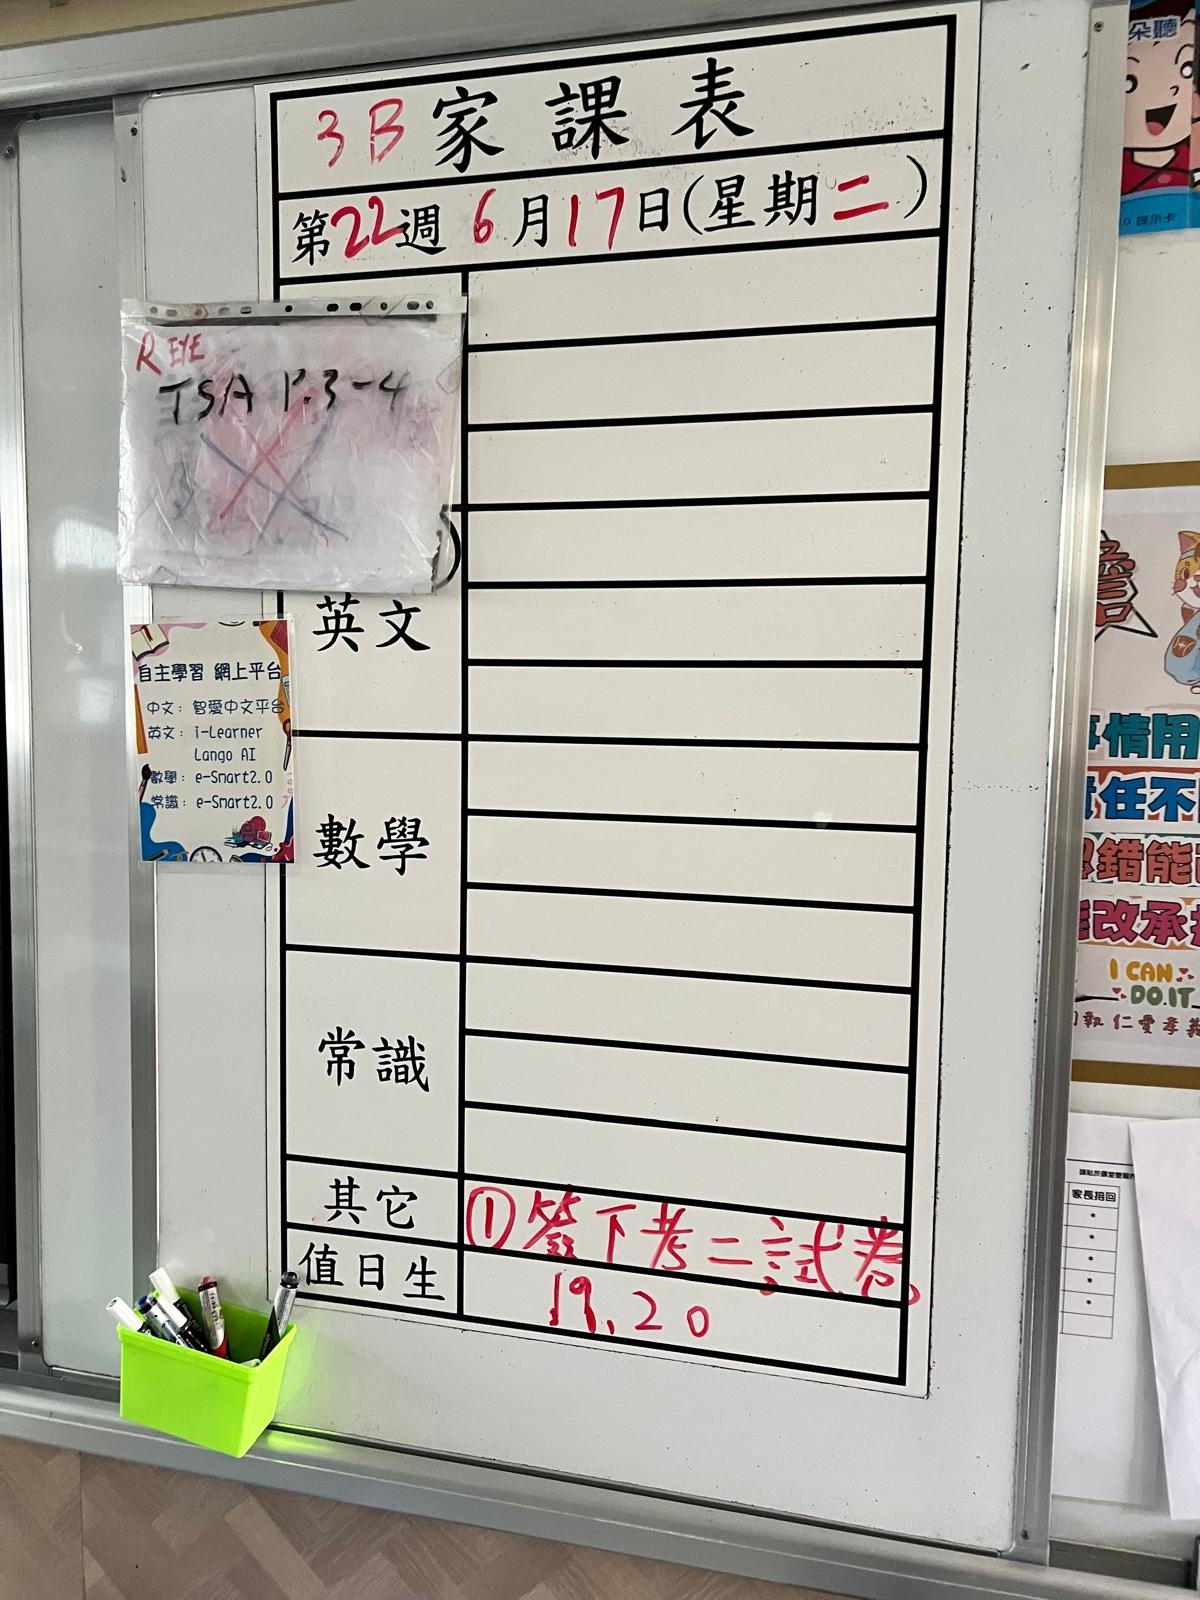 3B家課表
第22週 6月17日(星期二)
R EYE
TSA P.3-4
英文
數學
常識
其它 ①簽下考二試卷
值日生 19,20
自主學習 網上平台
中文: 智愛中文平台
英文: i-Learner
Lango AI
數學: e-Smart2.0
常識: e-Smart2.0
朵聽
提示卡
事情用
責任不
認錯能
能改承
I CAN
DO IT
仁愛孝
家長招回